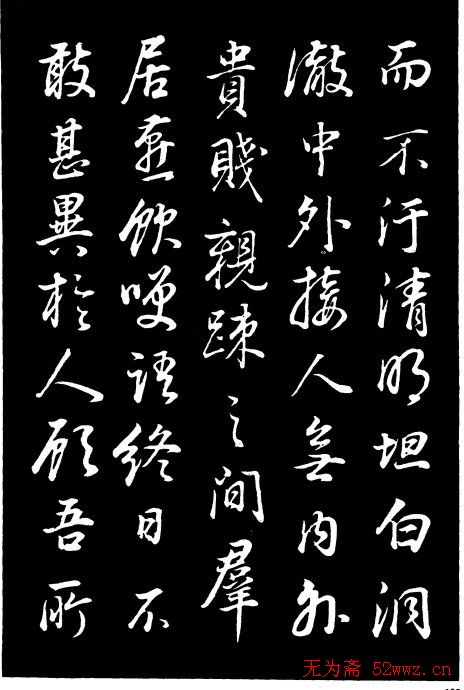 而不汙清明坦白洞
澈中外接人無内外
貴賤親疎之間羣
居燕飲咲語終日不
敢甚異於人顧吾所
无为斋 52wwz.cn